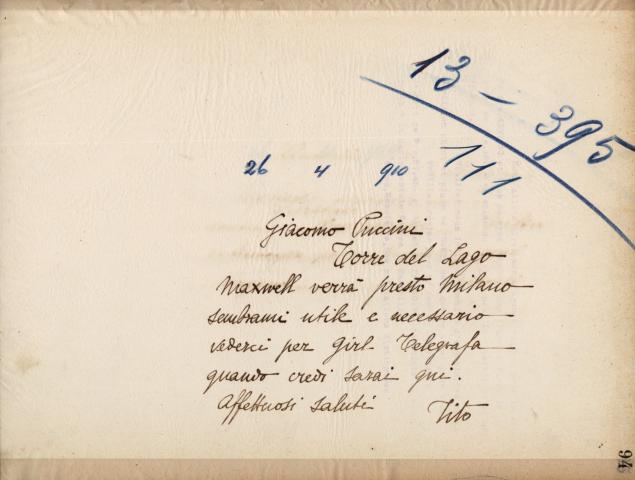 13 - 395
26 4 910 111
Giacomo Puccini
Torre del Lago
Maxwell verrà presto Milano
sembrami utile e necessario
vederci per Girl Telegrafa
quando credi sarai qui.
Affettuosi saluti Tito
94